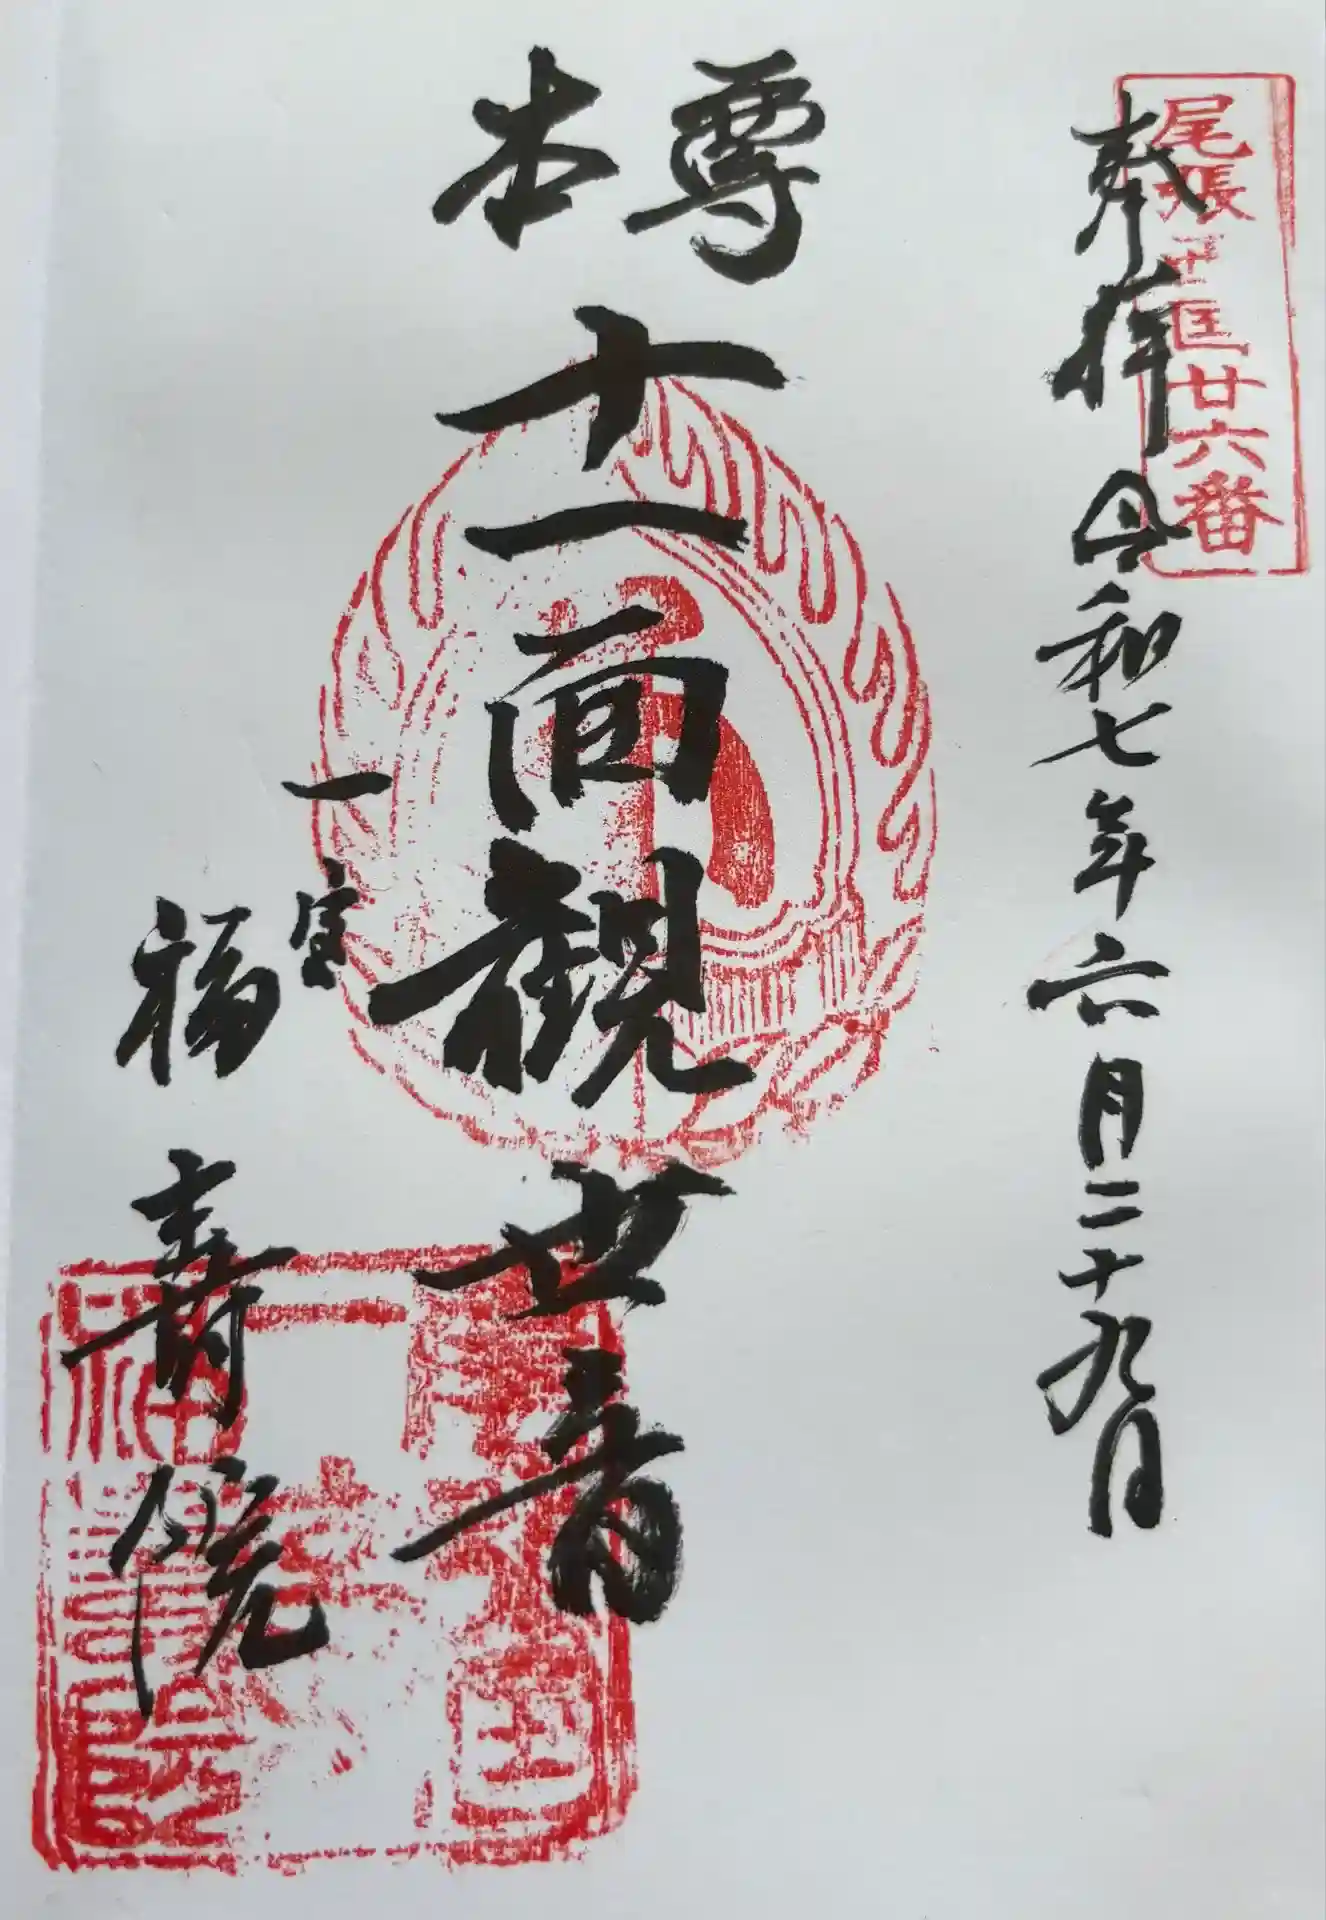 尾張三十三区廿六番
奉拝 令和七年六月二十九日
本尊
十一面観世音
一宮
福寿院